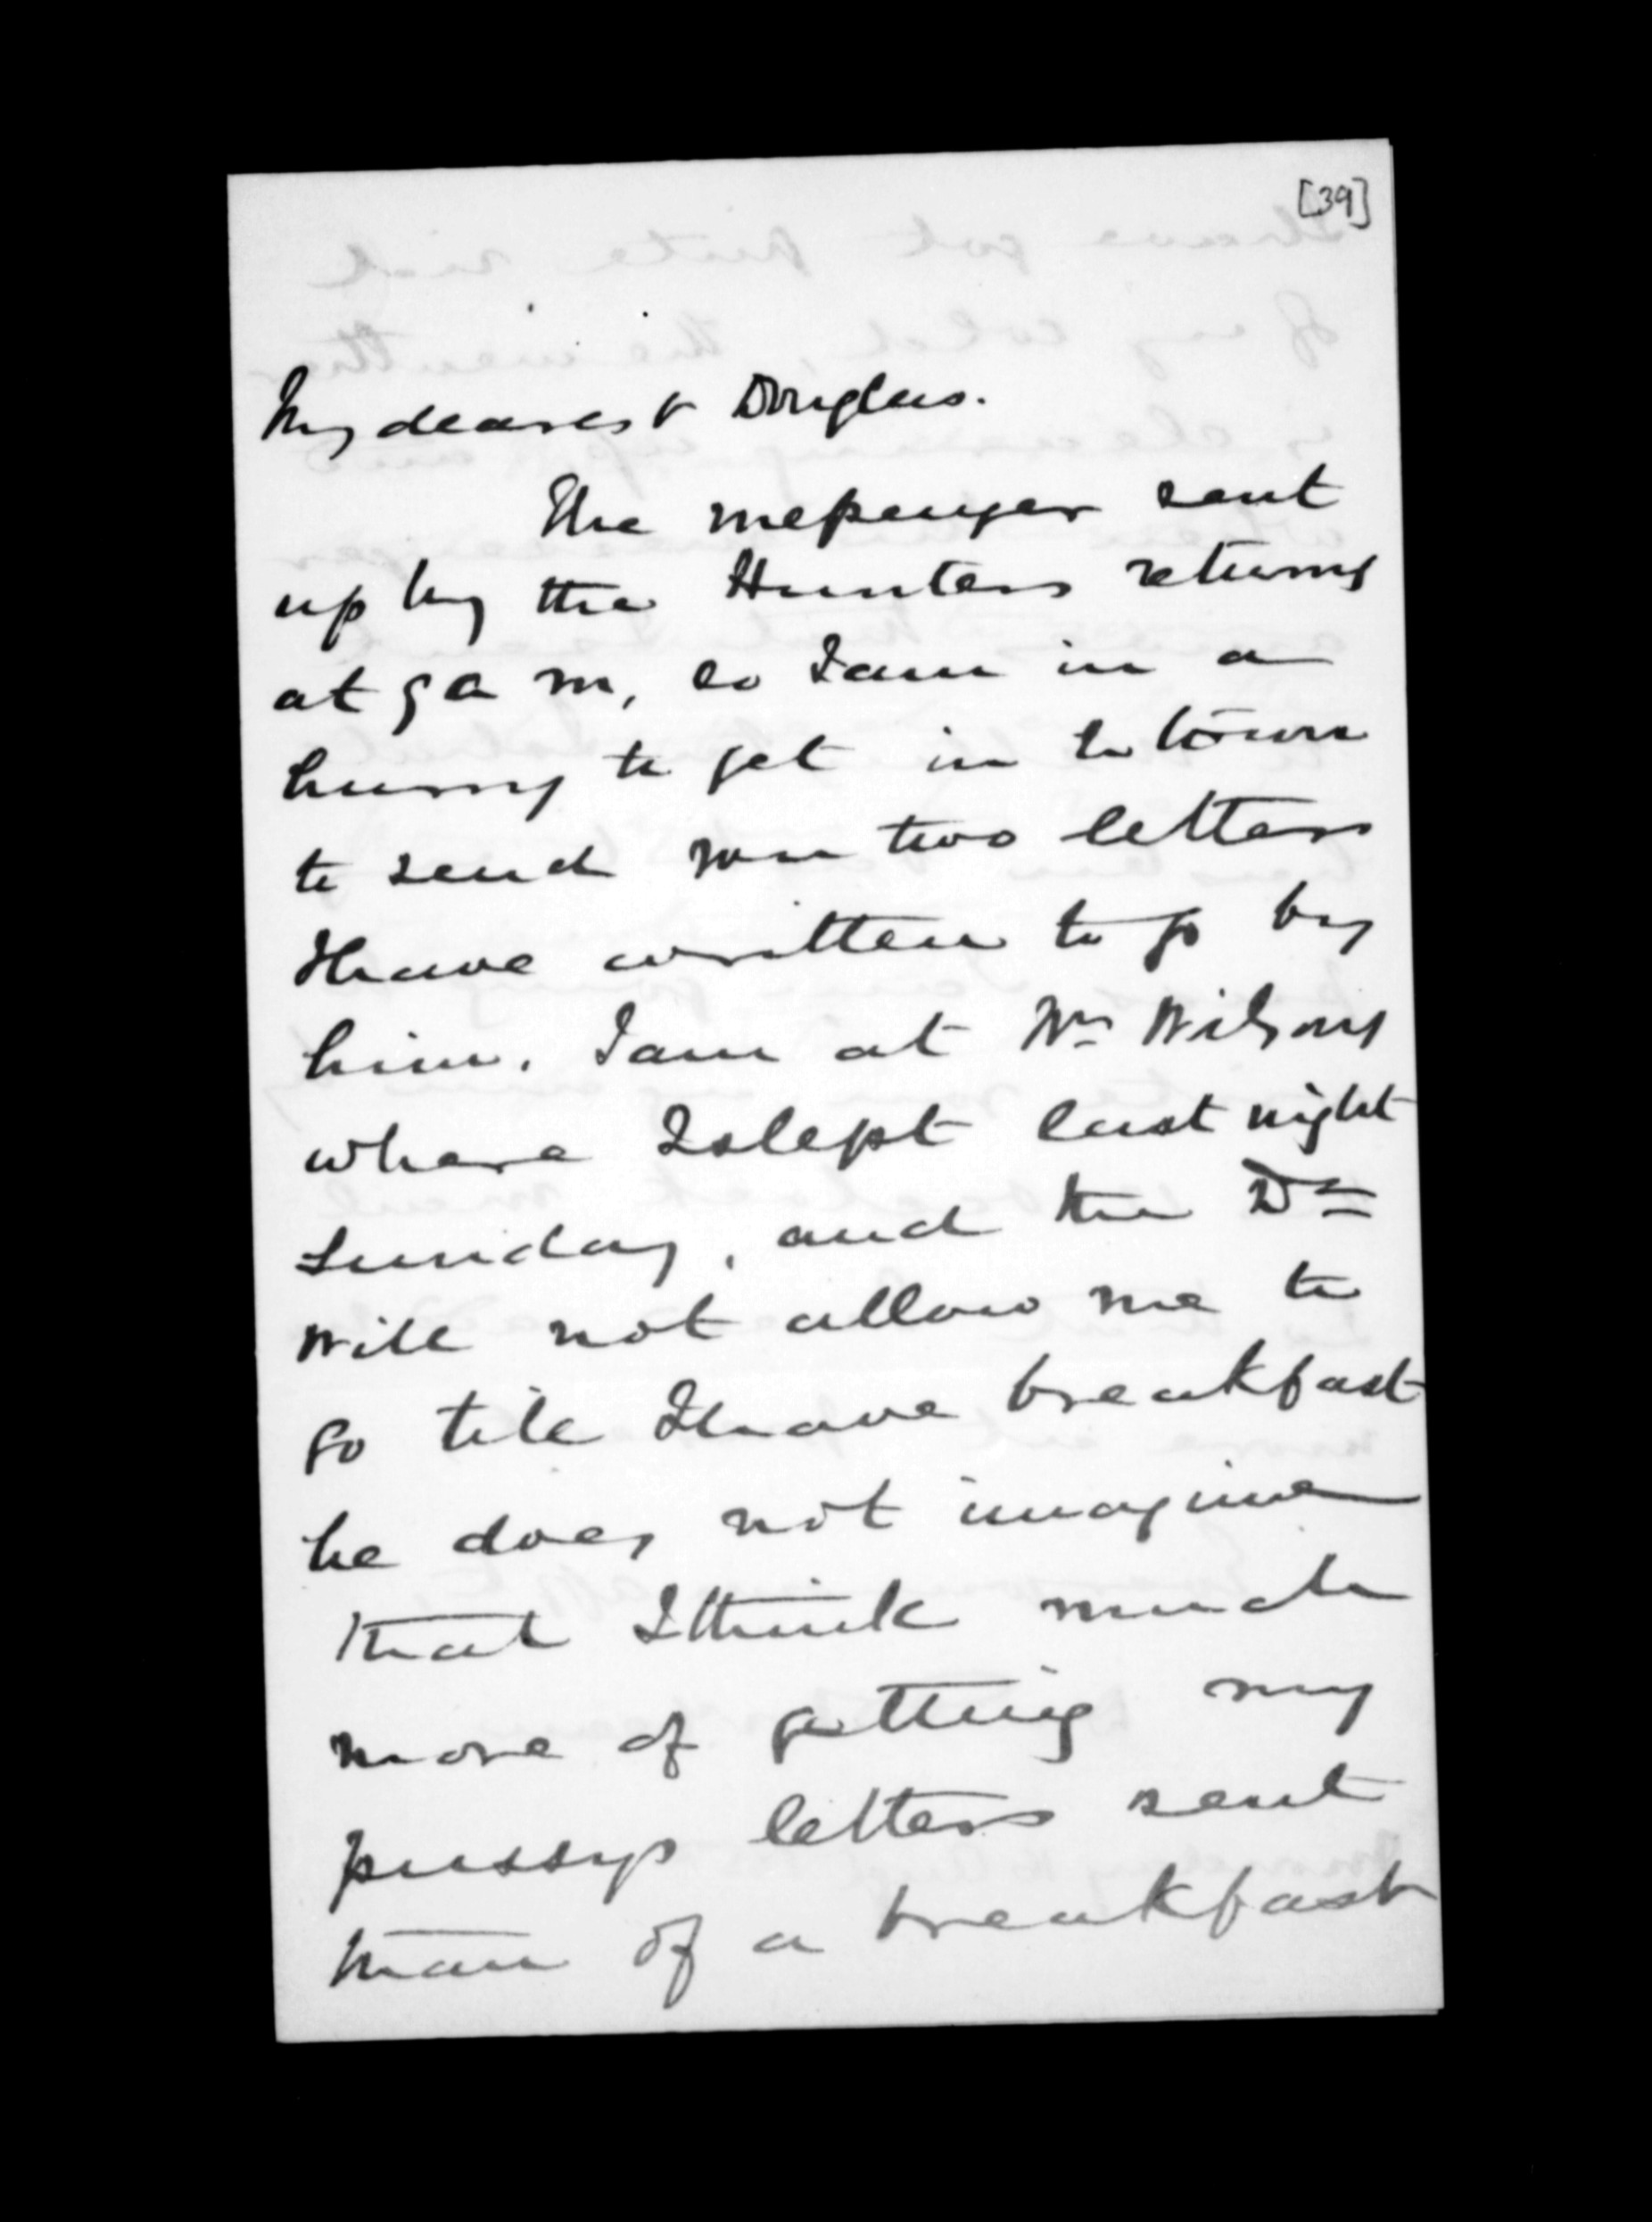 [39]
My dearest Douglas.
The messenger sent
up by the Hunters returns
at 9 a m, so I am in a
hurry to get in to town
to send you two letters
I have written to go by
him. I am at Wm Wilsons
where I slept last night
Sunday, and the Dr
will not allow me to
go till I have breakfast
he does not imagine
that I think much
more of getting my
pussys letters sent
than of a breakfast